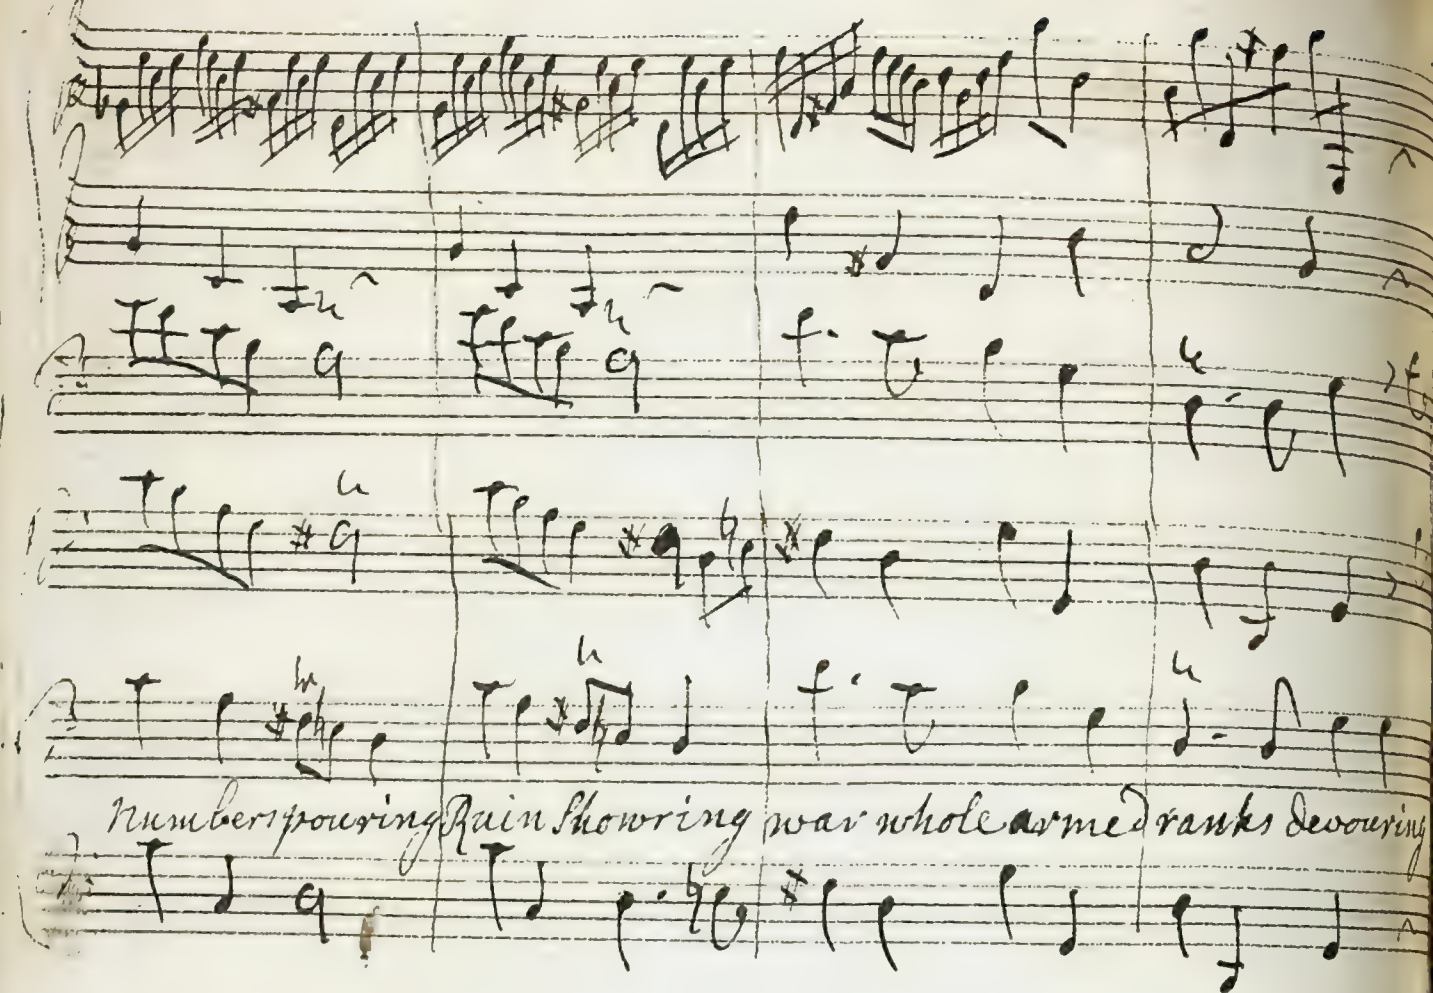 numbers pouring Ruin Showring war whole armed ranks devouring